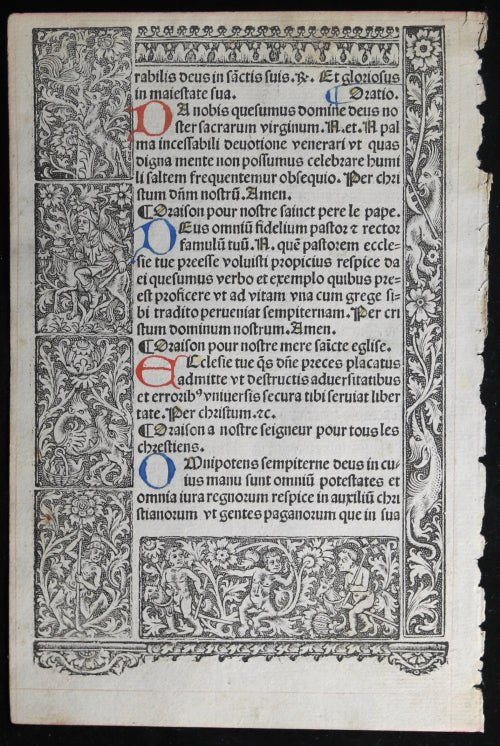 rabilis deus in sāctis suis. ℟. Et gloriosus
in maiestate sua. ¶ Oratio.
DA nobis quesumus domine deus no
ster sacrarum virginum. N. et. N pal
ma incessabili deuotione venerari vt quas
digna mente non possumus celebrare humi
li saltem frequentemur obsequio. Per chri
stum dn̄m nostrū. Amen.
¶ Oraison pour nostre sainct pere le pape.
DEus omniū fidelium pastor ⁊ rector
famulū tuū. N. quē pastorem eccle-
sie tue preesse voluisti propicius respice da
ei quesumus verbo et exemplo quibus pre-
est proficere vt ad vitam vna cum grege si-
bi tradito perueniat sempiternam. Per cri
stum dominum nostrum. Amen.
¶ Oraison pour nostre mere saīcte eglise.
EEclesie tue q̄s dn̄e preces placatus
admitte vt destructis aduersitatibus
et erroribꝰ vniuersis secura tibi seruiat liber
tate. Per christum. ⁊c.
¶ Oraison a nostre seigneur pour tous les
chrestiens.
OMnipotens sempiterne deus in cu-
ius manu sunt omniū potestates et
omnia iura regnorum respice in auxiliū chri
stianorum vt gentes paganorum que in sua